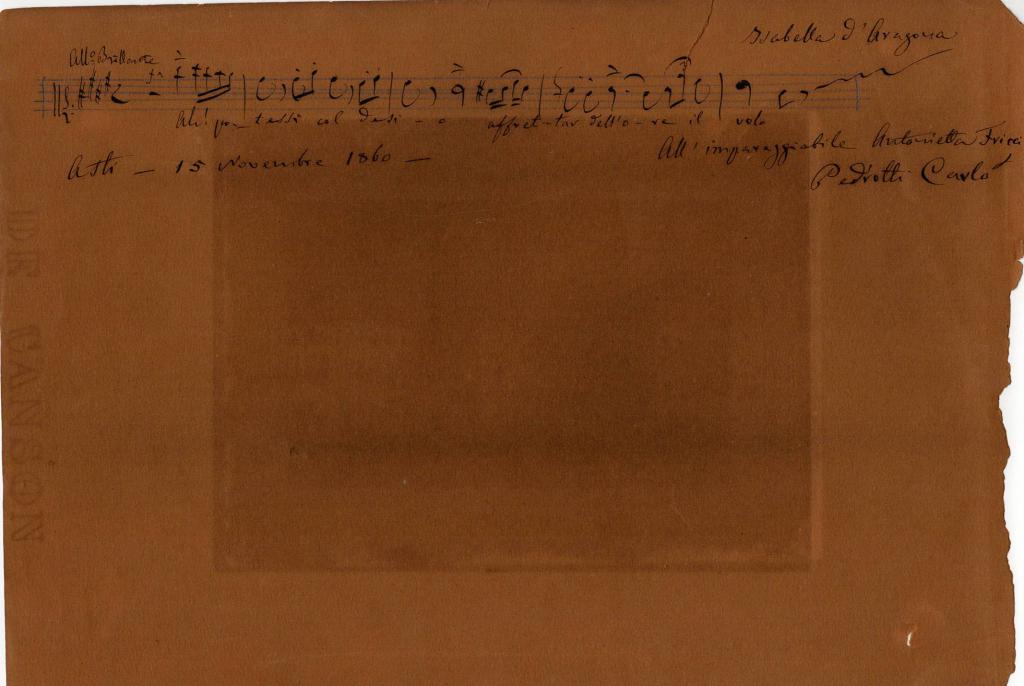 Isabella d'Aragona
All.º Brillante
Ah! po_tessi col desi - o affret-tar dell'o-re il volo
Asti _ 15 Novembre 1860 _
All' imparaggiabile Antonietta Fricci
Pedrotti Carlo